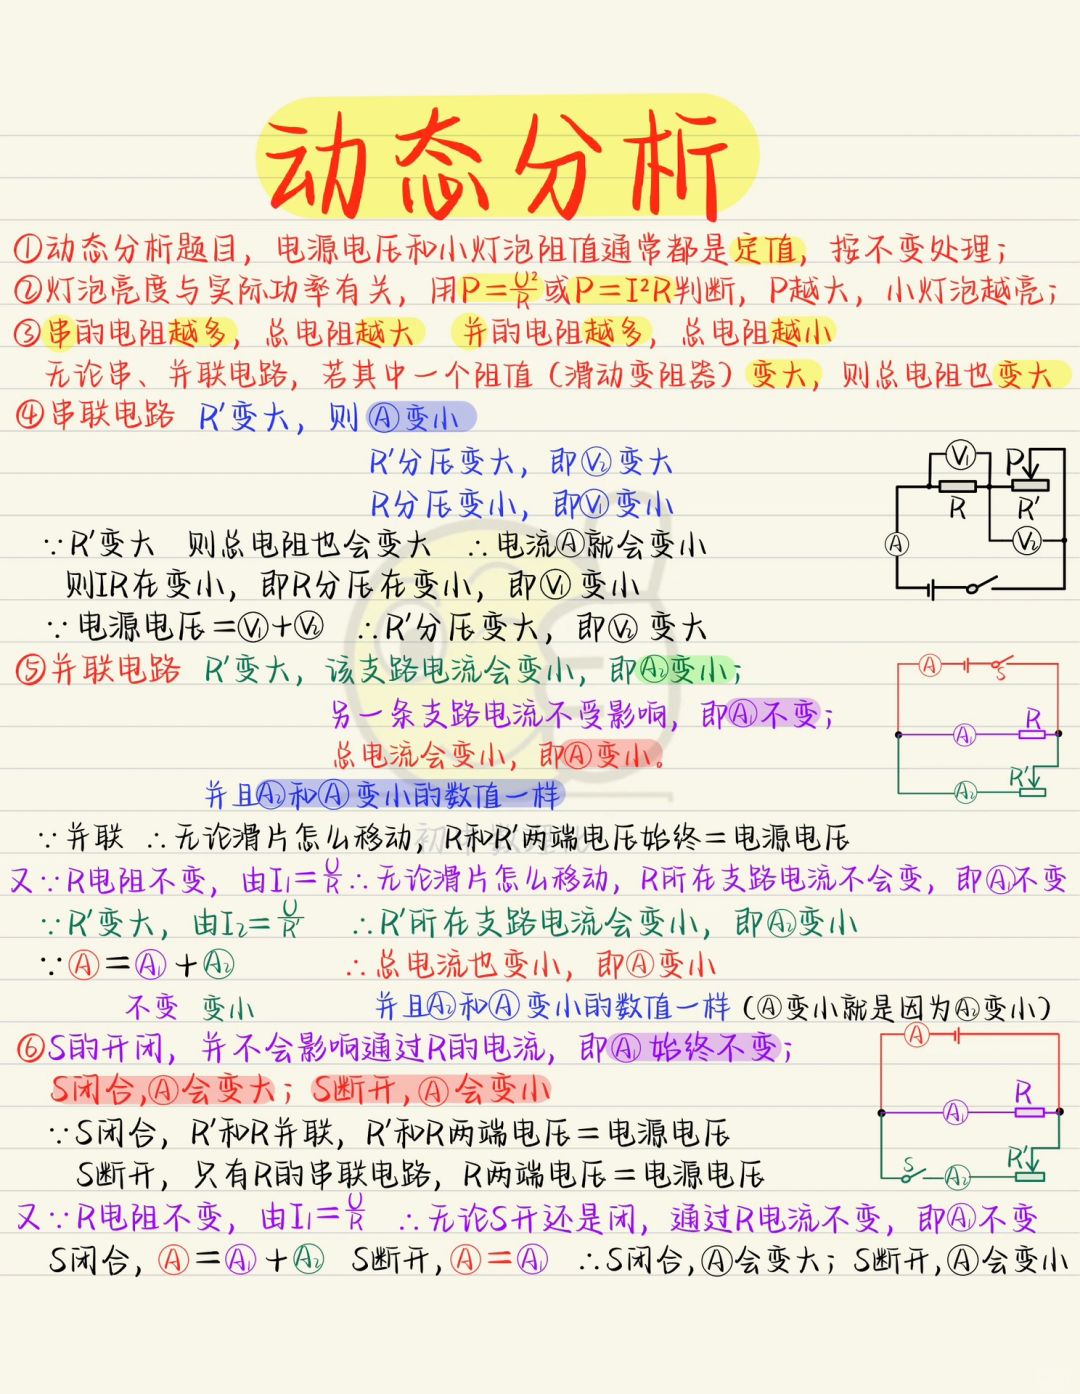 动态分析
①动态分析题目，电源电压和小灯泡阻值通常都是定值，按不变处理；
②灯泡亮度与实际功率有关，用P=U²/R或P=I²R判断，P越大，小灯泡越亮；
③串的电阻越多，总电阻越大 并的电阻越多，总电阻越小
无论串、并联电路，若其中一个阻值（滑动变阻器）变大，则总电阻也变大
④串联电路 R'变大，则Ⓐ变小
R'分压变大，即V₂变大
R分压变小，即V₁变小
V₁ P
R R'
A V₂
∵R'变大 则总电阻也会变大 ∴电流Ⓐ就会变小
则IR在变小，即R分压在变小，即V₁变小
∵电源电压=V₁+V₂ ∴R'分压变大，即V₂变大
⑤并联电路 R'变大，该支路电流会变小，即A₂变小；
另一条支路电流不受影响，即A₁不变；
总电流会变小，即Ⓐ变小。
并且A₂和Ⓐ变小的数值一样
A S
A₁ R
A₂ R'
初中数理化
∵并联 ∴无论滑片怎么移动，R和R'两端电压始终=电源电压
又∵R电阻不变，由I₁=U/R∴无论滑片怎么移动，R所在支路电流不会变，即A₁不变
∵R'变大，由I₂=U/R ∴R'所在支路电流会变小，即A₂变小
∵Ⓐ=A₁+A₂ ∴总电流也变小，即Ⓐ变小
不变 变小 并且A₂和Ⓐ变小的数值一样（Ⓐ变小就是因为A₂变小）
⑥S的开闭，并不会影响通过R的电流，即A₁始终不变；
S闭合，Ⓐ会变大；S断开，Ⓐ会变小
A
A₁ R
S A₂ R'
∵S闭合，R'和R并联，R'和R两端电压=电源电压
S断开，只有R的串联电路，R两端电压=电源电压
又∵R电阻不变，由I₁=U/R ∴无论S开还是闭，通过R电流不变，即A₁不变
S闭合，Ⓐ=A₁+A₂ S断开，Ⓐ=A₁ ∴S闭合，Ⓐ会变大；S断开，Ⓐ会变小